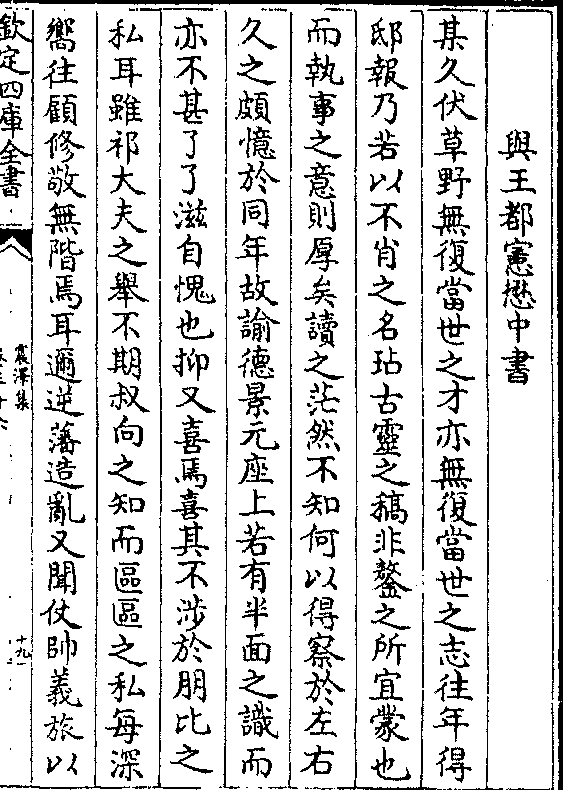 與王都憲懋中書
某久伏草野無復當世之才亦無復當世之志往年得
邸報乃若以不肖之名玷古靈之稿非鏊之所宜蒙也
而執事之意則厚矣讀之茫然不知何以得察於左右
久之頗憶於同年故諭德景元座上若有半面之識而
亦不甚了了滋自愧也抑又喜焉喜其不涉於朋比之
私耳雖祁大夫之舉不期叔向之知而區區之私每深
嚮往顧修敬無階焉耳邇逆藩造亂又聞仗帥義旅以
欽定四庫全書
震澤集
十九